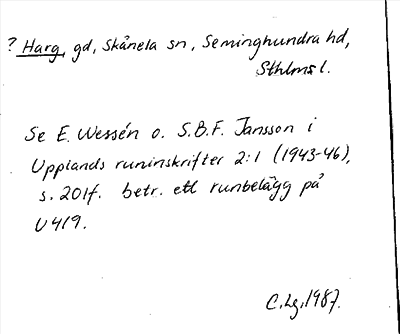 ? Harg, gd, Skånela sn, Seminghundra hd,
Sthlms l.
Se E. Wessén o. S.B.F. Jansson i
Upplands runinskrifter 2:1 (1943-46),
s. 201f. betr. ett runbelägg på
U 419.
C.Lg. 1987.